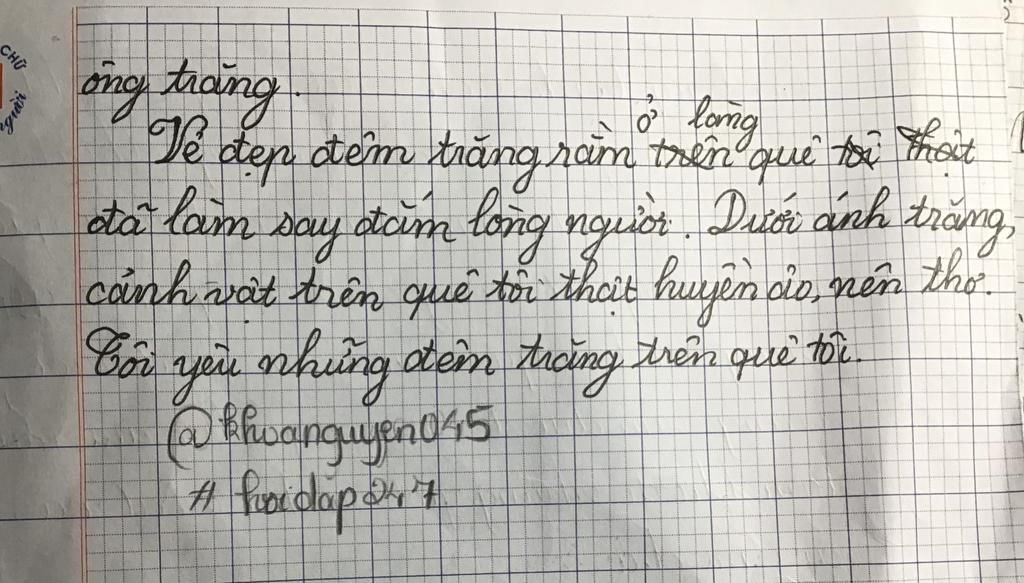 CHỮ
người
ông trăng.
ở làng
Vẻ đẹp đêm trăng rằm trên quê tôi thật
đã làm say đắm lòng người. Dưới ánh trăng,
cảnh vật trên quê tôi thật huyền ảo, nên thơ.
Tôi yêu những đêm trăng trên quê tôi.
@khoanguyen045
# hoidap247